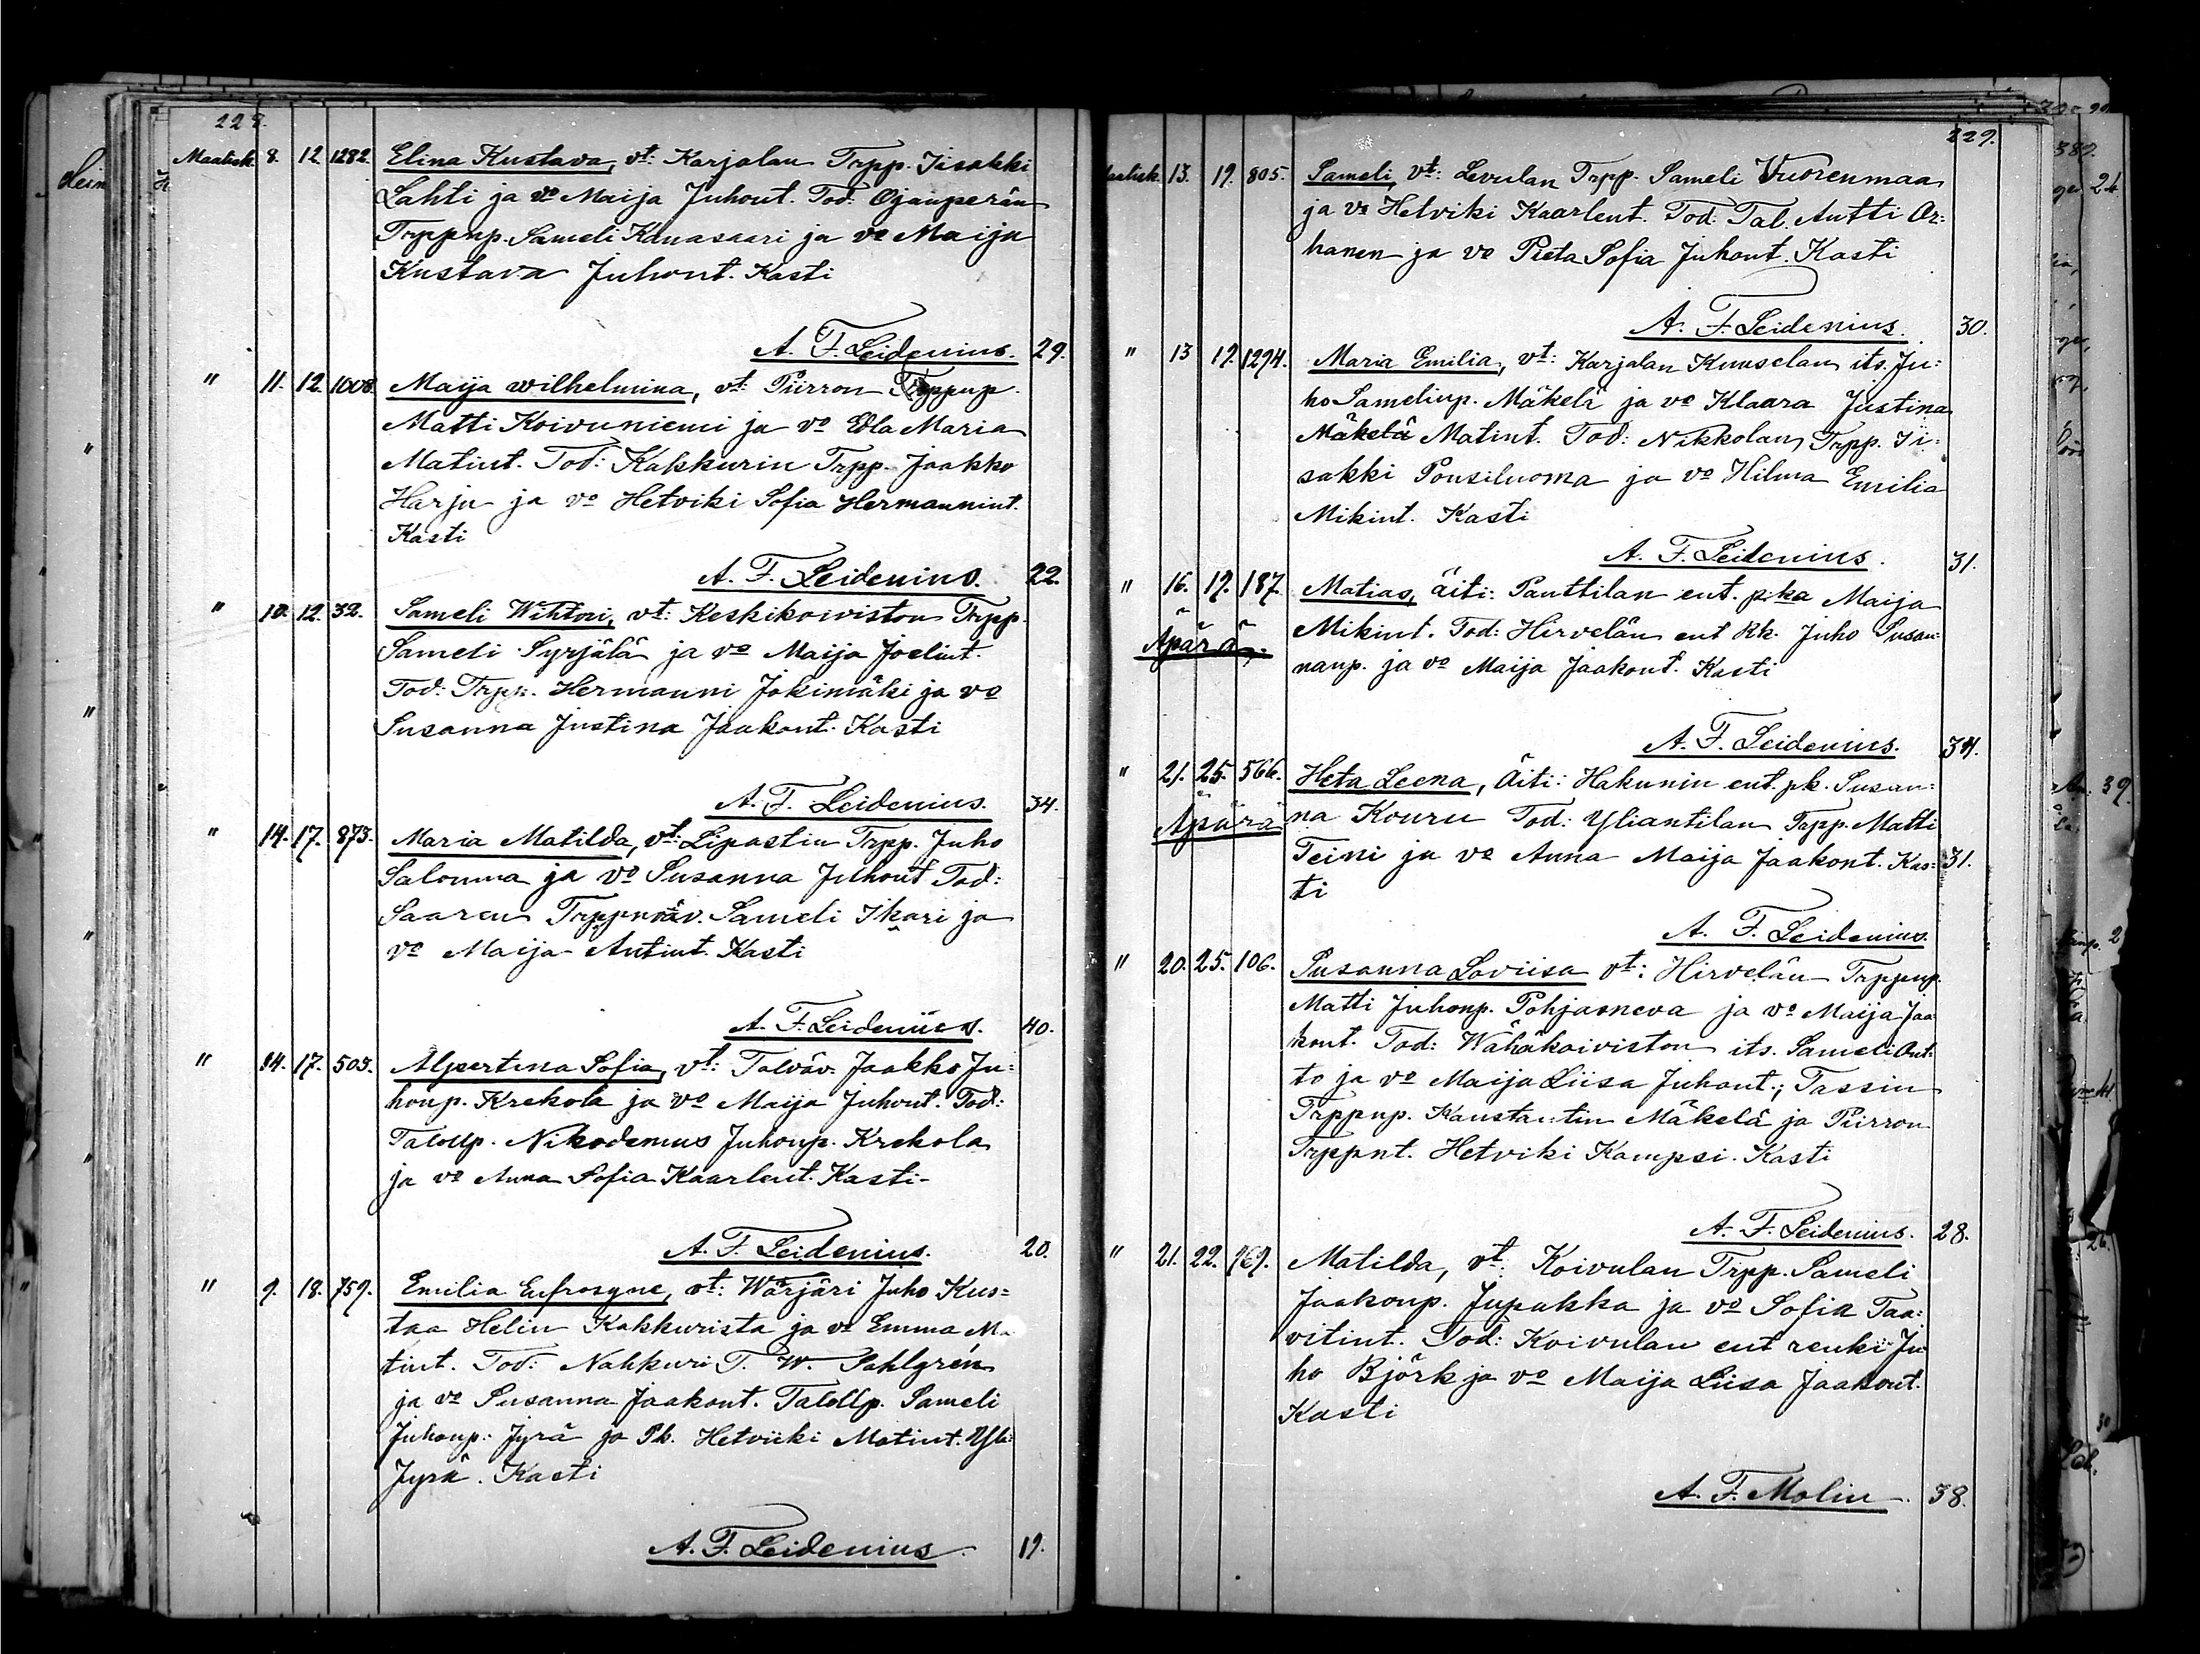 228.
Maalisk. 8. 12 1282. Elina Kustava, vt: Karjalan Trpp. Iisakki
Lahti ja vo Maija Juhont. Tod: Ojanperän
Trppnp. Sameli Kanasaari ja vo Maija
Kustava Juhont. Kasti
A. F. Leidenius. 29.
" 11. 12. 1008. Maija Wilhelmina, vt: Piirron Trppnp.
Matti Koivuniemi ja vo Edla Maria
Matint. Tod: Kakkurin Trpp. Jaakko
Harju ja vo Hetviki Sofia Hermannint.
Kasti
A. F. Leidenius. 22.
" 10. 12. 32. Sameli Wihtori, vt: Keskikoiviston Trpp.
Sameli Syrjälä ja vo Maija Joelint.
Tod: Trpp. Hermanni Jokimäki ja vo
Susanna Justina Jaakont. Kasti
A. F. Leidenius. 34.
" 14. 17. 873. Maria Matilda, vt: Lipastin Trpp. Juho
Salomma ja vo Susanna Juhont Tod:
Saaren Trppnväv. Sameli Ikari ja
vo Maija Antint. Kasti
A. F. Leidenius. 40.
" 14. 17. 503. Alpertina Sofia, vt: Talväv. Jaakko Ju=
honp. Krekola ja vo Maija Juhont. Tod:
Talollp. Nikodemus Juhonp. Krekola
ja vo Anna Sofia Kaarlent. Kasti
A. F. Leidenius. 20.
" 9. 18. 759. Emilia Eufrosyne, vt: Wärjäri Juho Kus=
taa Helin Kakkurista ja vo Emma Ma
tint. Tod: Nahkuri T. W. Sahlgrén
ja vo Susanna Jaakont. Talollp. Sameli
Juhonp. Jyrä ja Pk. Hetviiki Matint. Yli
Jyrä. Kasti
A. F. Leidenius. 19.
229.
aalisk. 13. 19. 805. Sameli, vt: Levulan Trpp. Sameli Vuorenmaa
ja vo Hetviki Kaarlent. Tod: Tal. Antti Or=
hanen ja vo Preta Sofia Juhont. Kasti
A. F. Leidenius. 30.
" 13 19. 1294. Maria Emilia, vt: Karjalan Kuuselan its. Ju=
ho Samelinp. Mäkelä ja vo Klaara Justina
Mäkelä Matint. Tod: Nikkolan Trpp. Ii=
sakki Ponsiluoma ja vo Hilma Emilia
Mikint. Kasti
A. F. Leidenius. 31.
" 16. 19. 187. Matias, äiti: Panttilan ent. pika Maija
Äpärä. Mikint. Tod: Hirvelän ent Rk. Juho Susan=
nanp. ja vo Maija Jaakont. Kasti
A. F. Leidenius. 34.
" 21. 25. 566. Heta Leena, Äiti: Hakunin ent. pk. Susan=
Äpärä na Kouru Tod: Yliantilan Trpp. Matti
Teini ja vo Anna Maija Jaakont. Kas= 31.
ti
A. F. Leidenius
" 20. 25. 106. Susanna Loviisa vt: Hirvelän Trppnp.
Matti Juhonp. Pohjasneva ja vo Maija Jaa
kont. Tod: Wähäkoiviston its. Sameli Ont=
to ja vo Maija Liisa Juhont.; Tassin
Trppnp. Kaustantin Mäkelä ja Piirron
Trppnt. Hetviki Kampsi. Kasti
A. F. Leidenius. 28.
" 21. 22. 769. Matilda, vt: Koivulan Trpp. Sameli
Jaakonp. Jupakka ja vo Sofia Taa=
vitint. Tod: Koivulan ent renki Ju
ho Björk ja vo Maija Liisa Jaakont.
Kasti
A. F. Molin. 38.